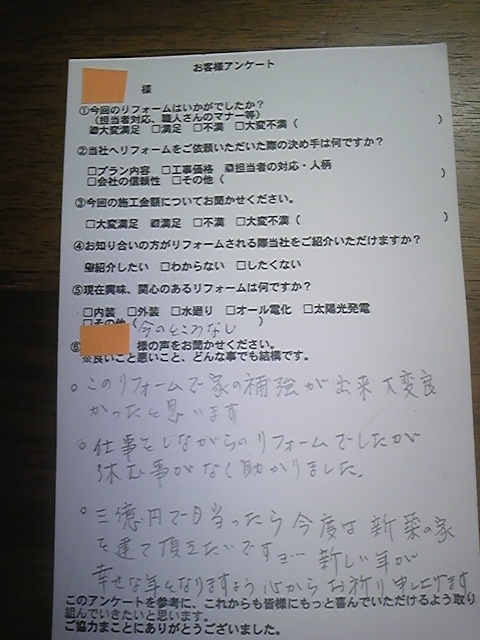 お客様アンケート
様
①今回のリフォームはいかがでしたか？
（担当者対応、職人さんのマナー等）
☑大変満足 □満足 □不満 □大変不満（ ）
②当社へリフォームをご依頼いただいた際の決め手は何ですか？
□プラン内容 □工事価格 ☑担当者の対応・人柄
□会社の信頼性 □その他（ ）
③今回の施工金額についてお聞かせください。
□大変満足 ☑満足 □不満 □大変不満（ ）
④お知り合いの方がリフォームされる際当社をご紹介いただけますか？
☑紹介したい □わからない □したくない
⑤現在興味、関心のあるリフォームは何ですか？
□内装 □外装 □水廻り □オール電化 □太陽光発電
□その他（今のところなし ）
⑥ 様の声をお聞かせください。
※良いこと悪いこと、どんな事でも結構です。
○このリフォームで家の補強が出来大変良
かったと思います
○仕事をしながらのリフォームでしたが
休む事がなく助かりました。
○三億円で当ったら今度は新築の家
を建て頂きたいですョ… 新しい年が
幸せな年となりますよう心からお祈り申し上げます
このアンケートを参考に、これからも皆様にもっと喜んでいただけるよう取り
組んでいきたいと思います。
ご協力まことにありがとうございました。